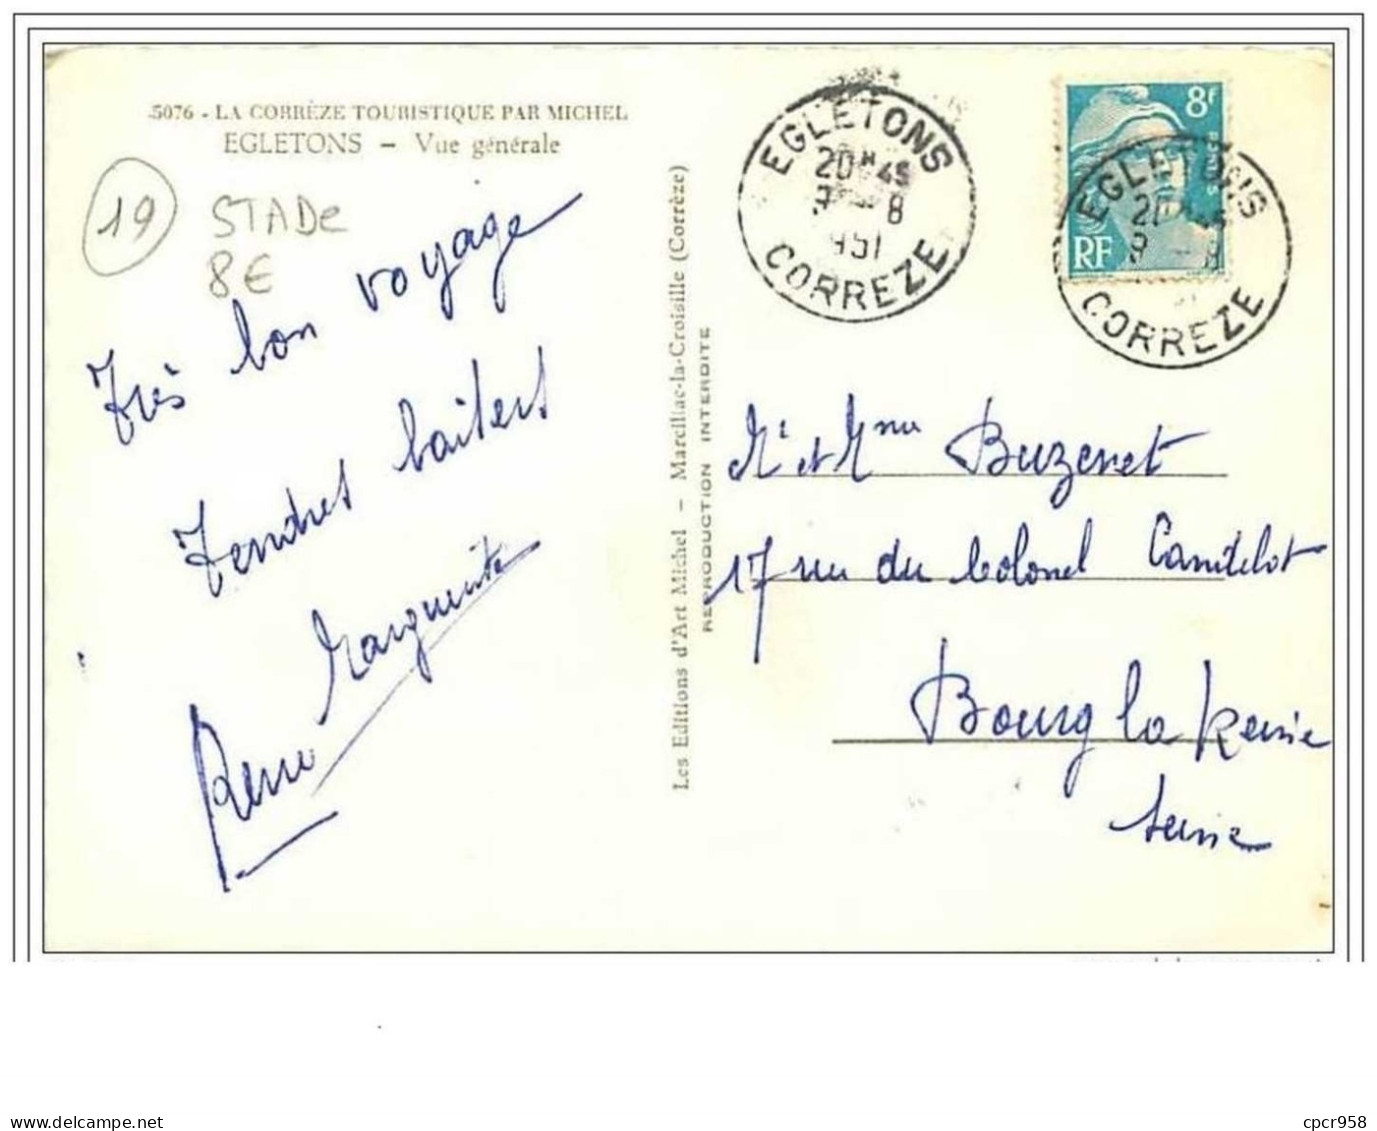 5076 - LA CORRÈZE TOURISTIQUE PAR MICHEL
EGLETONS - Vue générale
19
STADe
8€
Très bon voyage
Tendres baisers
Marguerite
Les Editions d'Art Michel - Marcillac-la-Croisille (Corrèze)
REPRODUCTION INTERDITE
EGLETONS
20H45
9 - 8
1951
CORREZE
8F
POSTES
RF
EGLETONS
CORREZE
Mr et Mme Buzenet
17 rue du Colonel Candelot
Bourg la Reine
Seine
delcampe.net
cpcr958